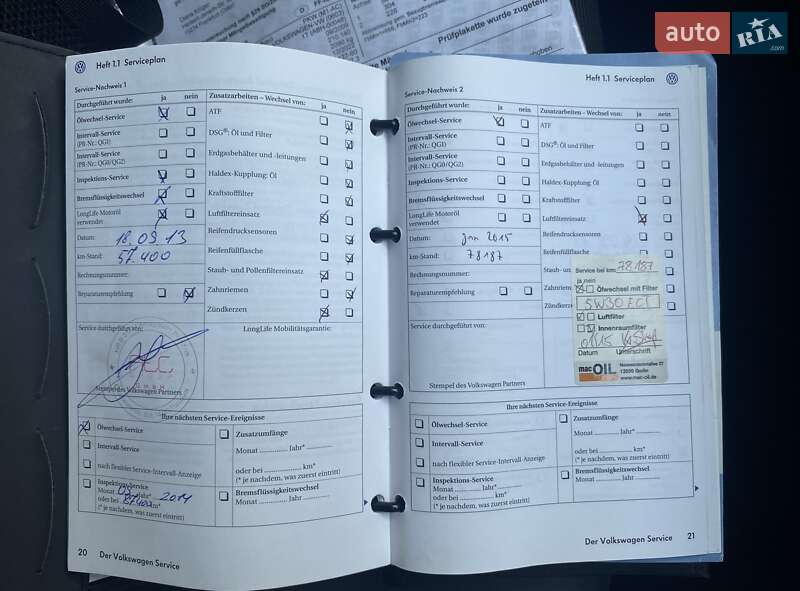 auto RIA .com
Prüfplakette wurde zugeteilt
Heft 1.1 Serviceplan
Service-Nachweis 1
Durchgeführt wurde: ja nein
Ölwechsel-Service
Intervall-Service
(PR-Nr.: QG1)
Intervall-Service
(PR-Nr.: QG0/QG2)
Inspektions-Service
Bremsflüssigkeitswechsel
LongLife Motoröl
verwendet
Datum: 18.09.13
km-Stand: 57.400
Rechnungsnummer:
Reparaturempfehlung
Zusatzarbeiten – Wechsel von: ja nein
ATF
DSG®: Öl und Filter
Erdgasbehälter und -leitungen
Haldex-Kupplung: Öl
Kraftstofffilter
Luftfiltereinsatz
Reifendrucksensoren
Reifenfüllflasche
Staub- und Pollenfiltereinsatz
Zahnriemen
Zündkerzen
Service durchgeführt von:
LongLife Mobilitätsgarantie:
Stempel des Volkswagen Partners
Ihre nächsten Service-Ereignisse
Ölwechsel-Service
Intervall-Service
nach flexibler Service-Intervall-Anzeige
Inspektions-Service
Monat 09 Jahr* 2014
oder bei 87400 km*
(* je nachdem, was zuerst eintritt)
Zusatzumfänge
Monat Jahr*
oder bei km*
(* je nachdem, was zuerst eintritt)
Bremsflüssigkeitswechsel
Monat Jahr
20 Der Volkswagen Service
Heft 1.1 Serviceplan
Service-Nachweis 2
Durchgeführt wurde: ja nein
Ölwechsel-Service
Intervall-Service
(PR-Nr.: QG1)
Intervall-Service
(PR-Nr.: QG0/QG2)
Inspektions-Service
Bremsflüssigkeitswechsel
LongLife Motoröl
verwendet
Datum: Jan 2015
km-Stand: 78187
Rechnungsnummer:
Reparaturempfehlung
Zusatzarbeiten – Wechsel von: ja nein
ATF
DSG®: Öl und Filter
Erdgasbehälter und -leitungen
Haldex-Kupplung: Öl
Kraftstofffilter
Luftfiltereinsatz
Reifendrucksensoren
Reifenfüllflasche
Staub- un
Zahnriemen
Zündkerzen
Service bei km: 78187
ja nein
Ölwechsel mit Filter
5W30
Luftfilter
Innenraumfilter
01/15
Datum Unterschrift
mac OIL
www.mac-oil.de
Service durchgeführt von:
Stempel des Volkswagen Partners
Ihre nächsten Service-Ereignisse
Ölwechsel-Service
Intervall-Service
nach flexibler Service-Intervall-Anzeige
Inspektions-Service
Monat Jahr*
oder bei km*
(* je nachdem, was zuerst eintritt)
Zusatzumfänge
Monat Jahr*
oder bei km*
(* je nachdem, was zuerst eintritt)
Bremsflüssigkeitswechsel
Monat Jahr
Der Volkswagen Service 21